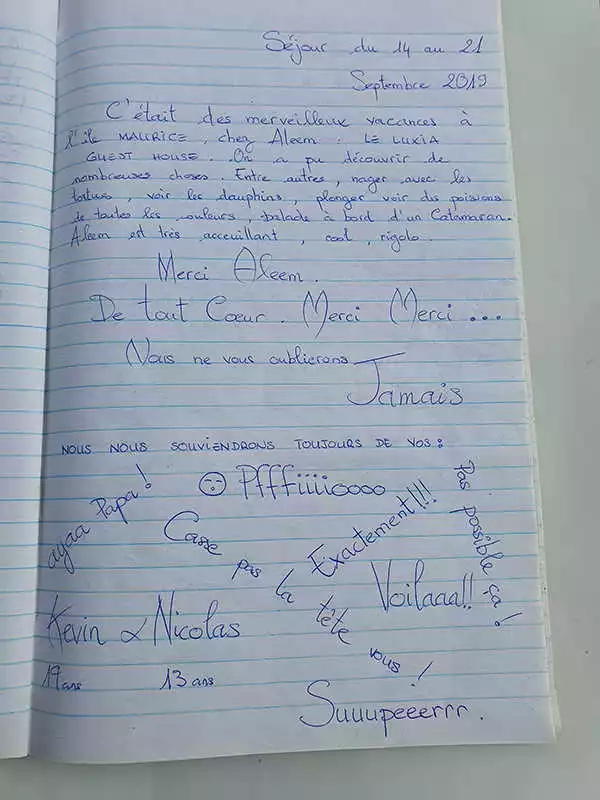 Séjour du 14 au 21
Septembre 2019
C'était des merveilleux vacances à
l'île MAURICE, chez Aleem. LE LUXIA
GUEST HOUSE. On a pu découvrir de
nombreuses choses. Entre autres, nager avec les
tortues, voir les dauphins, plonger voir des poissons
de toutes les couleurs, balade à bord d'un Catamaran.
Aleem est très acceuillant, cool, rigolo.
Merci Aleem.
De tout Cœur. Merci Merci ...
Nous ne vous oublierons
Jamais
NOUS NOUS SOUVIENDRONS TOUJOURS DE VOS :
ayaa Papa!
Pfffiiiioooo
Pas possible ça!
Casse pas la tête vous!
Exactement!!!
Voilaaa!!
Kevin & Nicolas
19 ans 13 ans
Suuupeeerrr.